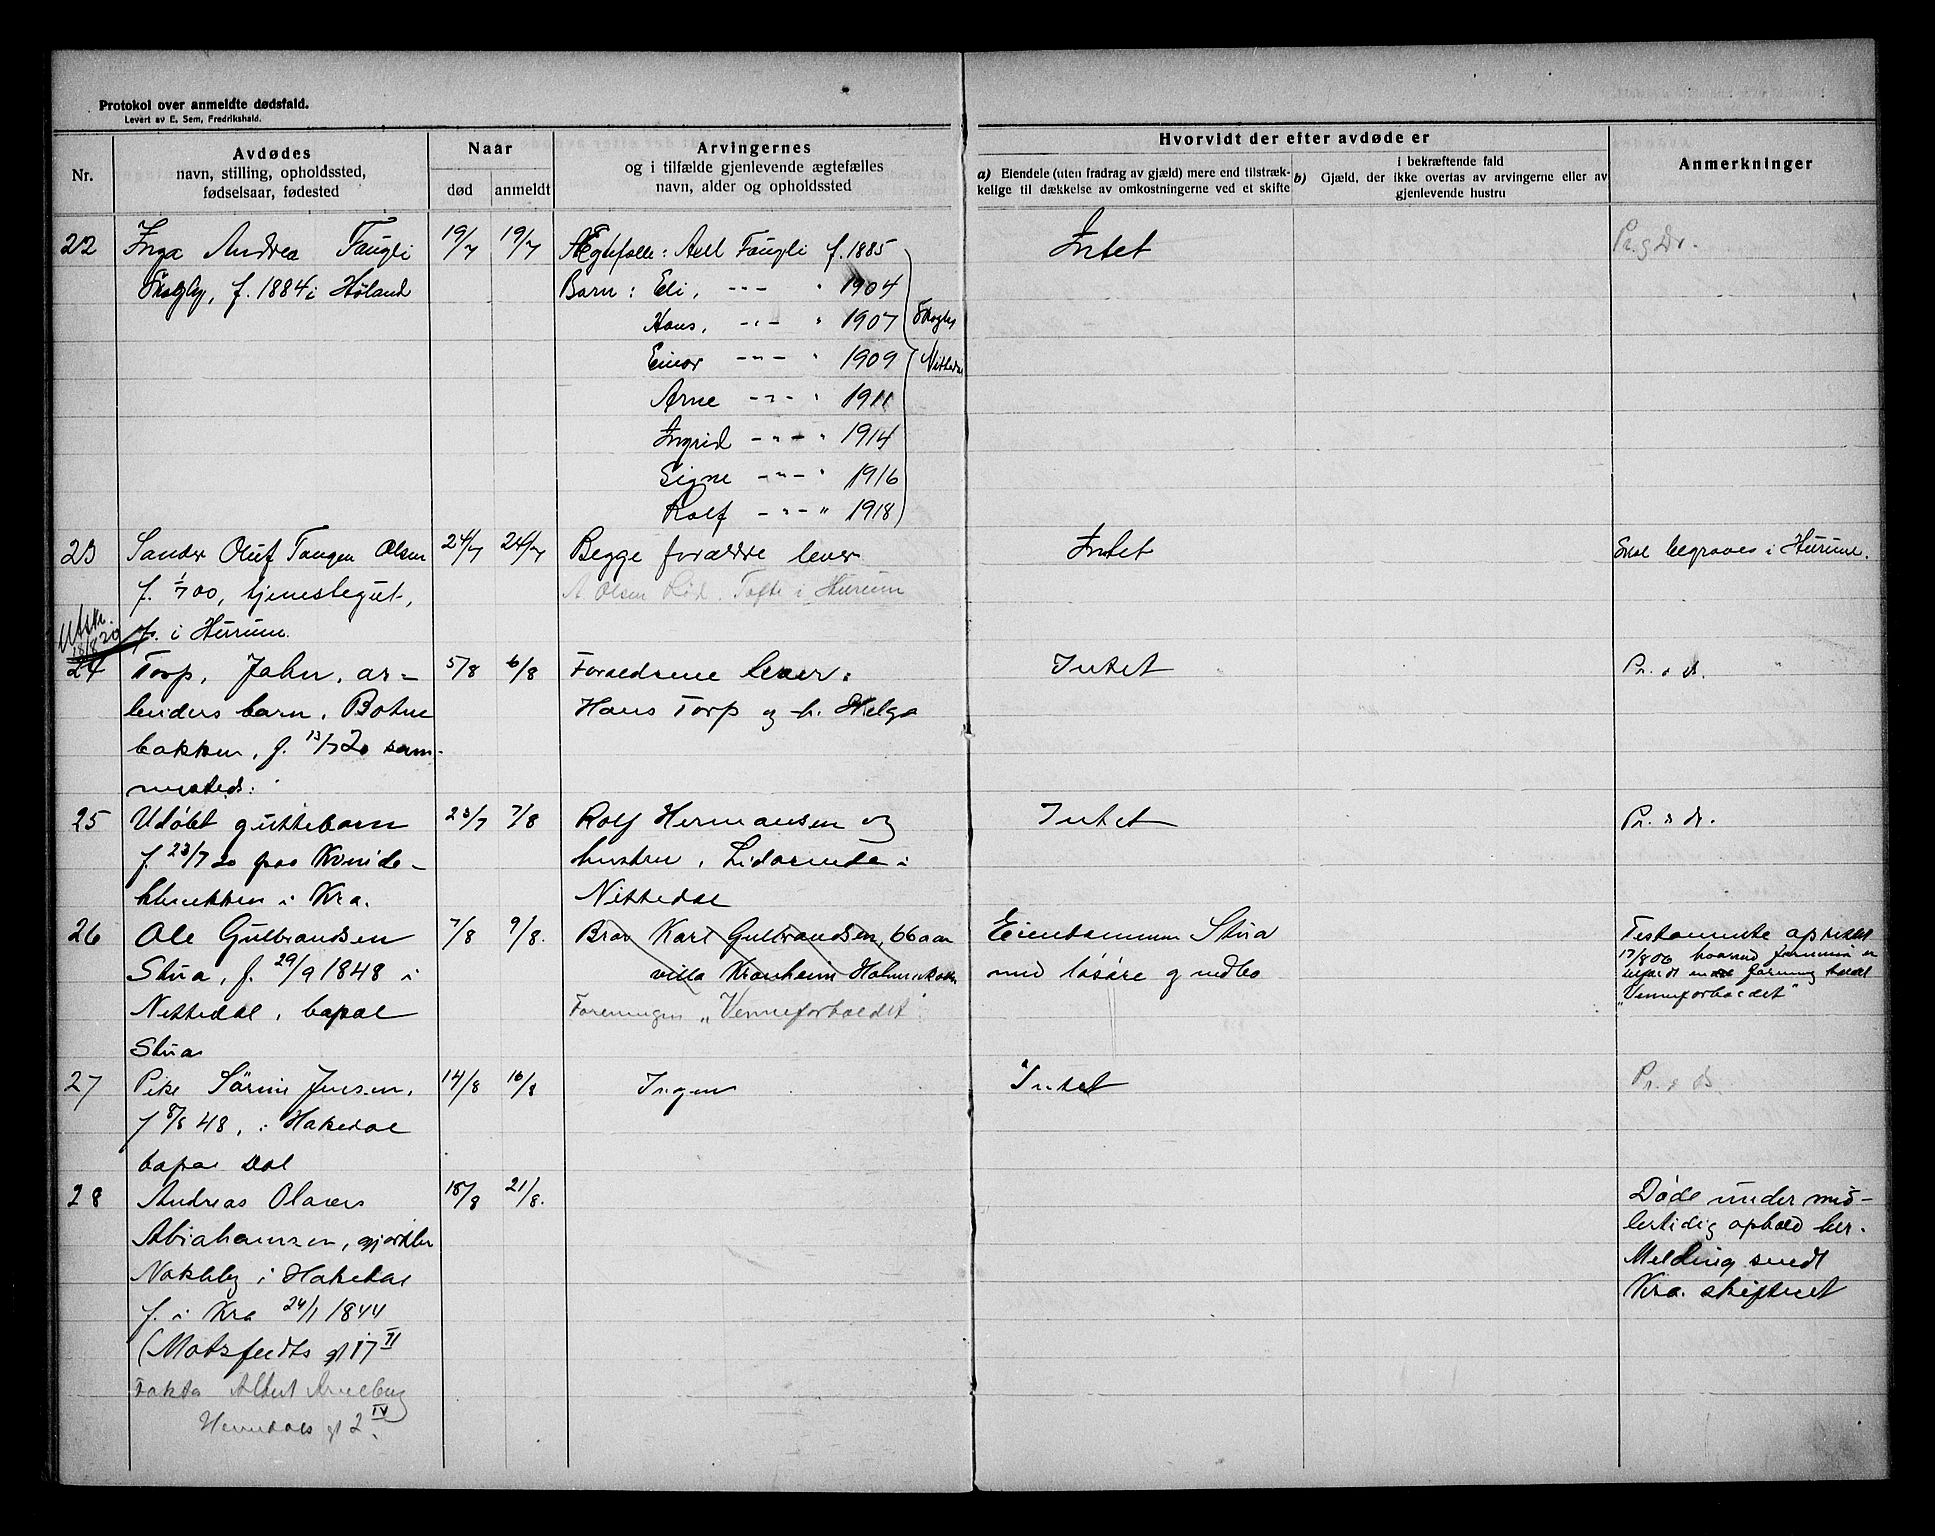 Protokol over anmeldte dødsfald.
Levert av E. Sem, Fredrikshald.
Nr.
Avdødes
navn, stilling, opholdssted,
fødselsaar, fødested
Naar
død
anmeldt
Arvingernes
og i tilfælde gjenlevende ægtefælles
navn, alder og opholdssted
Hvorvidt der efter avdøde er
a) Eiendele (uten fradrag av gjæld) mere end tilstræk-
kelige til dækkelse av omkostningerne ved et skifte
b) i bekræftende fald
Gjæld, der ikke overtas av arvingerne eller av
gjenlevende hustru
Anmerkninger
22 Inga Andrea Faugli 19/7 19/7 Ægtefælle: Axel Faugli f. 1885 Intet Pr. g Dr.
Skøgby, f. 1884 i Høland Barn: Eli, -"- " 1904
Hans, -"- " 1907 Skøgby
Einar -"- " 1909 Nittedal
Arne -"- " 1911
Ingrid -"- " 1914
Signe -"- " 1916
Rolf -"- " 1918
23 Sander Oluf Tangen Olsen 24/7 24/7 Begge forældre lever Intet Skal begraves i Hurum.
f. 1/7 00, tjenestegut, A Olsen Rød. Tofte i Hurum
Utskr. 18/8 20 fs. i Hurum.
24 Torp, John, ar- 5/8 6/8 Forældrene lever: Intet Pr. o dr.
beiders barn, Bohne Hans Torp og h. Helga
bakken, f. 13/7 20 sam-
mesteds.
25 Udøbt guttebarn 23/7 7/8 Rolf Hermansen og Intet Pr. o dr.
f. 23/7 20 paa Kvinde- hustru,
klinikken i Kra. Nittedal
26 Ole Gulbrandsen 7/8 9/8. Bror Karl Gulbrandsen, 66 aar Eiendommen Stua Testamente oprettet
Stua, f. 29/9 1848 i villa Kranheim med løsøre g indbo
Nittedal, bopæl Foreningen "Venneforbundet" "Venneforbundet"
Stua
27 Pike Sørine Jensen, 14/8 16/8 Ingen Intet Pr. o dr.
f 8/8 48, i Hakedal
bopæl Dal
28 Andreas Olaves 18/8 21/8. Døde under mid-
Abrahamsen, gjørtler lertidig ophold her.
Nakkby i Hakedal Melding sendt
f. i Kra 24/1 1844 Kra. skifteret
(Motzfeldts gt 17 II
Fakta Albert Arneberg
gt 2. IV